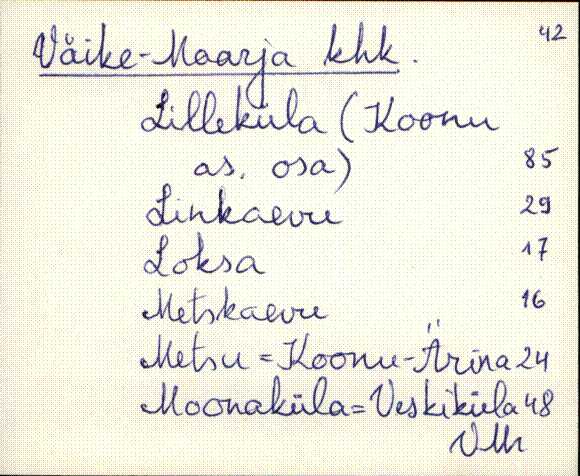 42
Väike-Maarja khk.
Lilleküla (Koonu
as. osa) 85
Linkaevu 29
Loksa 17
Metskaevu 16
Metsu = Koonu-Ärina 24
Moonaküla = Veskiküla 48